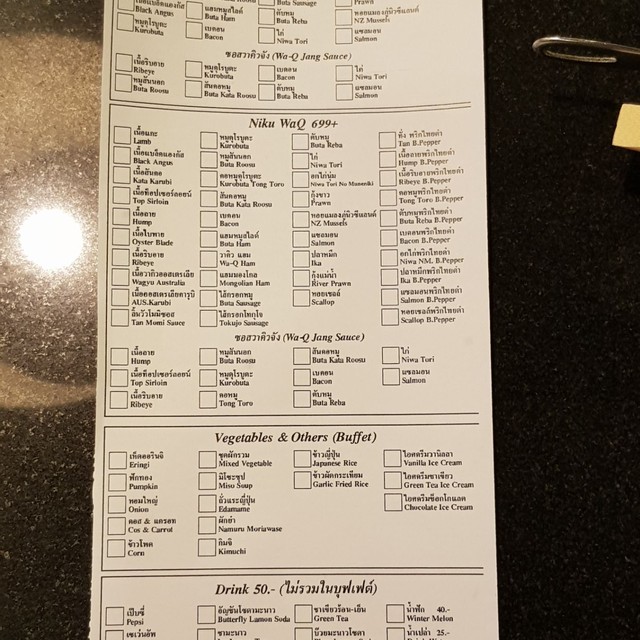 Black Angus
หมูคุโรบูตะ
Kurobuta
แฮมหมูสไลด์
Buta Ham
เบคอน
Bacon
Buta Sausage
ตับหมู
Buta Reba
ไก่
Niwa Tori
Prawn
หอยแมลงภู่นิวซีแลนด์
NZ Mussels
แซลมอน
Salmon
ซอสวาคิวจัง (Wa-Q Jang Sauce)
เนื้อริบอาย
Ribeye
หมูสันนอก
Buta Roosu
หมูคุโรบูตะ
Kurobuta
สันคอหมู
Buta Kata Roosu
เบคอน
Bacon
ตับหมู
Buta Reba
ไก่
Niwa Tori
แซลมอน
Salmon
Niku WaQ 699+
เนื้อแกะ
Lamb
เนื้อแบล็คแองกัส
Black Angus
เนื้อสันคอ
Kata Karubi
เนื้อท็อปเซอร์ลอยน์
Top Sirloin
เนื้อลาย
Hump
เนื้อใบพาย
Oyster Blade
เนื้อริบอาย
Ribeye
เนื้อวากิวออสเตรเลีย
Wagyu Australia
เนื้อออสเตรเลียคารูบิ
AUS.Karubi
ลิ้นวัวโมมิซอส
Tan Momi Sauce
หมูคุโรบูตะ
Kurobuta
หมูสันนอก
Buta Roosu
คอหมูคุโรบูตะ
Kurobuta Tong Toro
สันคอหมู
Buta Kata Roosu
เบคอน
Bacon
แฮมหมูสไลด์
Buta Ham
วาคิว แฮม
Wa-Q Ham
แฮมมองโกล
Mongolian Ham
ไส้กรอกหมู
Buta Sausage
ไส้กรอกโทกุโจ
Tokujo Sausage
ตับหมู
Buta Reba
ไก่
Niwa Tori
อกไก่นุ่ม
Niwa Tori No Muneniki
กุ้งขาว
Prawn
หอยแมลงภู่นิวซีแลนด์
NZ Mussels
แซลมอน
Salmon
ปลาหมึก
Ika
กุ้งแม่น้ำ
River Prawn
หอยเชลล์
Scallop
พริกไทยดำ
Tan B.Pepper
เนื้อลายพริกไทยดำ
Hump B.Pepper
เนื้อริบอายพริกไทยดำ
Ribeye B.Pepper
คอหมูพริกไทยดำ
Tong Toro B.Pepper
ตับหมูพริกไทยดำ
Buta Reba B.Pepper
เบคอนพริกไทยดำ
Bacon B.Pepper
อกไก่พริกไทยดำ
Niwa NM. B.Pepper
ปลาหมึกพริกไทยดำ
Ika B.Pepper
แซลมอนพริกไทยดำ
Salmon B.Pepper
หอยเชลล์พริกไทยดำ
Scallop B.Pepper
ซอสวาคิวจัง (Wa-Q Jang Sauce)
เนื้อลาย
Hump
เนื้อท็อปเซอร์ลอยน์
Top Sirloin
เนื้อริบอาย
Ribeye
หมูสันนอก
Buta Roosu
หมูคุโรบูตะ
Kurobuta
คอหมู
Tong Toro
สันคอหมู
Buta Kata Roosu
เบคอน
Bacon
ตับหมู
Buta Reba
ไก่
Niwa Tori
แซลมอน
Salmon
Vegetables & Others (Buffet)
เห็ดออรินจิ
Eringi
ฟักทอง
Pumpkin
หอมใหญ่
Onion
คอส & แครอท
Cos & Carrot
ข้าวโพด
Corn
ชุดผักรวม
Mixed Vegetable
มิโซะซุป
Miso Soup
ถั่วแระญี่ปุ่น
Edamame
ผักยำ
Namuru Moriawase
กิมจิ
Kimuchi
ข้าวญี่ปุ่น
Japanese Rice
ข้าวผัดกระเทียม
Garlic Fried Rice
ไอศครีมวานิลลา
Vanilla Ice Cream
ไอศครีมชาเขียว
Green Tea Ice Cream
ไอศครีมช็อกโกแลต
Chocolate Ice Cream
Drink 50.- (ไม่รวมในบุฟเฟ่ต์)
เป๊บซี่
Pepsi
เซเว่นอัพ
อัญชันโซดามะนาว
Butterfly Lamon Soda
ชามะนาว
ชาเขียวร้อน-เย็น
Green Tea
บ๊วยมะนาวโซดา
น้ำฟัก 40.-
Winter Melon
น้ำเปล่า 25.-